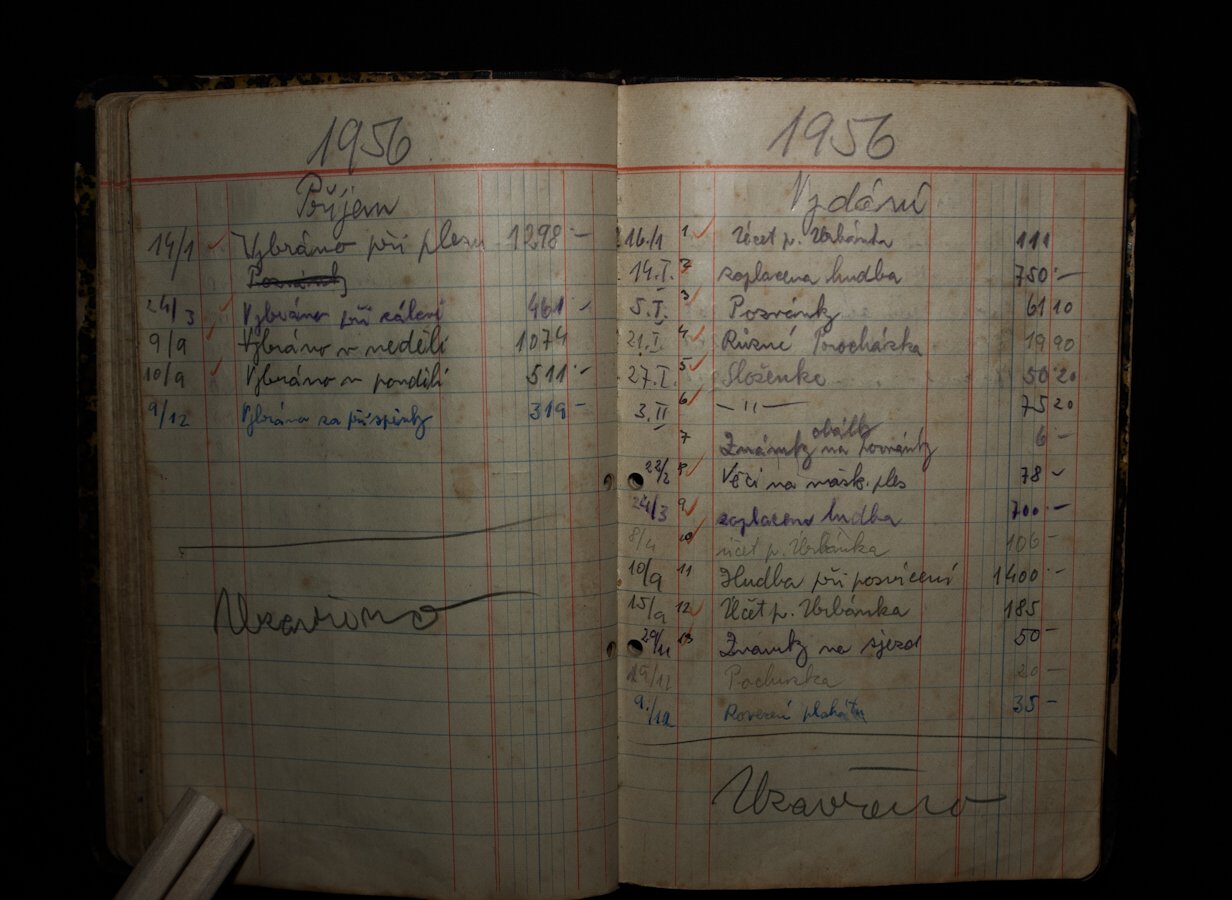 1956
Příjem
14/1 Vybráno při plesu 1298 –
24/3 Vybráno při 461 –
9/9 Vybráno v neděli 1074
10/9 Vybráno v pondělí 511 –
9/12 Vybráno za příspěvky 319 –
Uzavřeno
1956
Vydání
16./1 1 Účet p. Urbánka 111
14.I. 2 zaplacena hudba 750 –
5.I. 3 Pozvánky 61 10
21.I. 4 Různé Procházka 19 90
27.I. 5 Složenka 50 20
3.II 6 — " — 75 20
7 Známky na obálky 6 –
22/2 8 Věci na mašk. ples 78 –
24/3 9 zaplacena hudba 700 –
8/4 10 účet p. Urbánka 106 –
10/9 11 Hudba při posvícení 1400 –
15/9 12 Účet p. Urbánka 185
29/11 13 Známky na sjezd 50 –
19/12 Pochůzka 20 –
9./12 plakátu 35 –
Uzavřeno